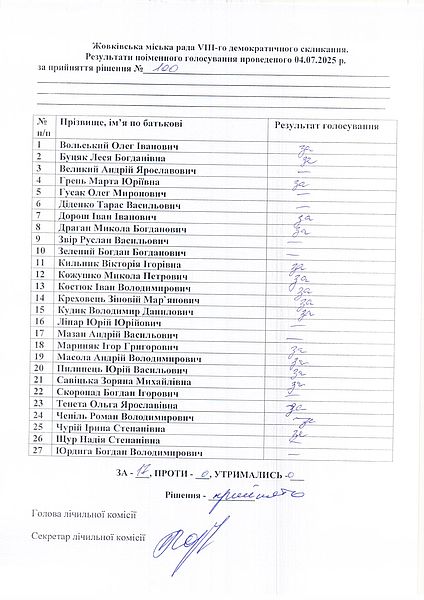 Жовківська міська рада VIII-го демократичного скликання.
Результати поіменного голосування проведеного 04.07.2025 р.
за прийняття рішення № 100
№ п/п Прізвище, ім’я по батькові Результат голосування
1 Вольський Олег Іванович за
2 Буцяк Леся Богданівна за
3 Великий Андрій Ярославович —
4 Грень Марта Юріївна за
5 Гусак Олег Миронович —
6 Діденко Тарас Васильович —
7 Дорош Іван Іванович за
8 Драган Микола Богданович за
9 Звір Руслан Васильович —
10 Зелений Богдан Богданович —
11 Кильник Вікторія Ігорівна за
12 Кожушко Микола Петрович за
13 Костюк Іван Володимирович за
14 Креховець Зіновій Мар`янович за
15 Кудик Володимир Данилович за
16 Ліпар Юрій Юрійович —
17 Мазан Андрій Васильович —
18 Мариняк Ігор Григорович за
19 Масола Андрій Володимирович за
20 Пилипець Юрій Васильович за
21 Савіцька Зоряна Михайлівна за
22 Скоропад Богдан Ігорович —
23 Тенета Ольга Ярославівна за
24 Чепіль Роман Володимирович за
25 Чурій Ірина Степанівна за
26 Щур Надія Степанівна —
27 Юрдига Богдан Володимирович —
ЗА - 17, ПРОТИ - 0, УТРИМАЛИСЬ - 0
Рішення - прийнято
Голова лічильної комісії
Секретар лічильної комісії